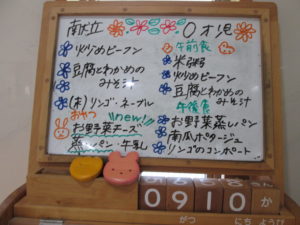 献立
炒めビーフン
豆腐とわかめの
みそ汁
(木)リンゴ・ネーブル
おやつ
new!!
お野菜チーズ
蒸しパン・牛乳
0才児
午前食
米粥
炒めビーフン
豆腐とわかめの
みそ汁
午後食
お野菜蒸しパン
南瓜ポタージュ
リンゴのコンポート
0910か
がつ にち ようび